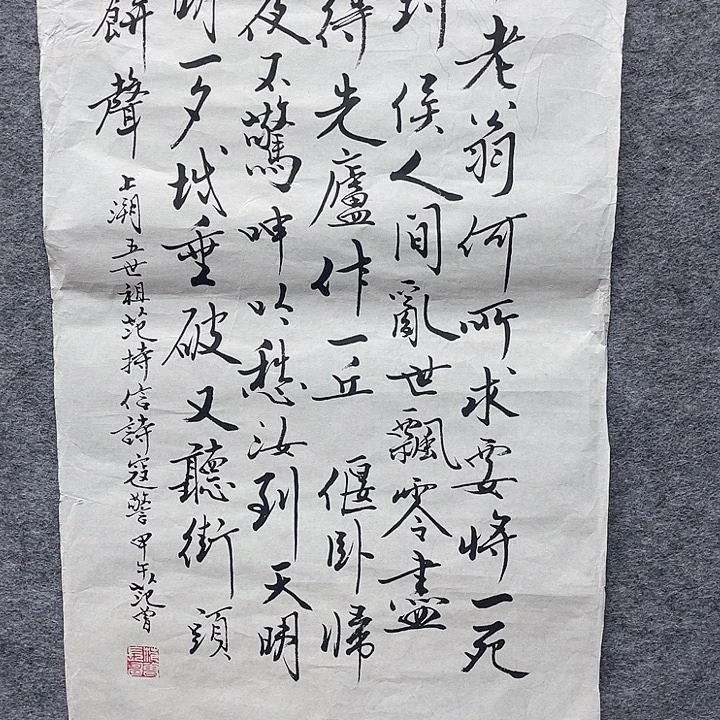 老翁何所求要將一死
侯人間亂世飄零盡
得先廬作一丘 偃卧歸
夜不驚呻吟愁汝到天明
一夕城垂破又聽街頭
餅聲
上溯五世祖范持信詩寇警甲午范曾